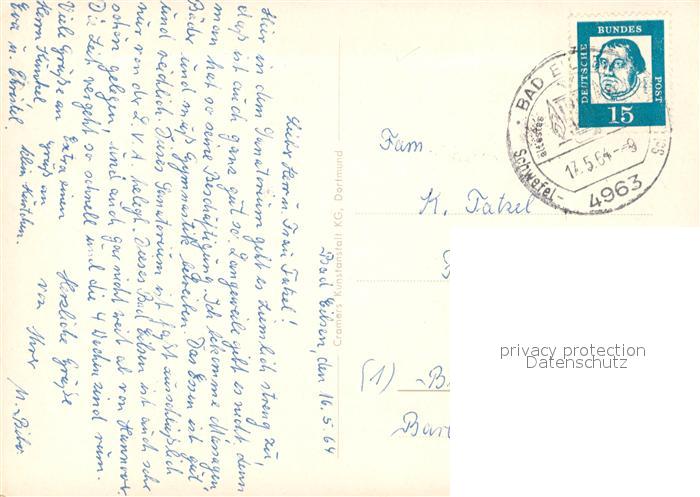 Bad Eilsen, den 16.5.64
Lieber Herr u. Frau Fatzel!
Hier in dem Sanatorium geht es ziemlich streng zu,
ist auch ganz gut so. Langeweile gibt es nicht, denn
man hat so seine Beschäftigung. Ich bekomme Massagen,
Bäder und muß Gymnastik betreiben. Das Essen ist gut
und reichlich. Dieses Sanatorium ist fast ausschließlich
nur von der L.V.A. belegt. Dieses Bad Eilsen ist auch sehr
schön gelegen, und auch gar nicht weit ab von Hannover.
Die Zeit vergeht so schnell und die 4 Wochen sind rum.
Viele Grüße an
Herrn Künkel
Eva u. Christel.
Extra einen
Gruß an
Herzliche Grüße
von Ihrer
Cramers Kunstanstalt KG, Dortmund
DEUTSCHE BUNDES POST
15
BAD
Schwefel-
17.5.64--9
4963
Fam.
K. Fatzel
(1)
privacy protection
Datenschutz